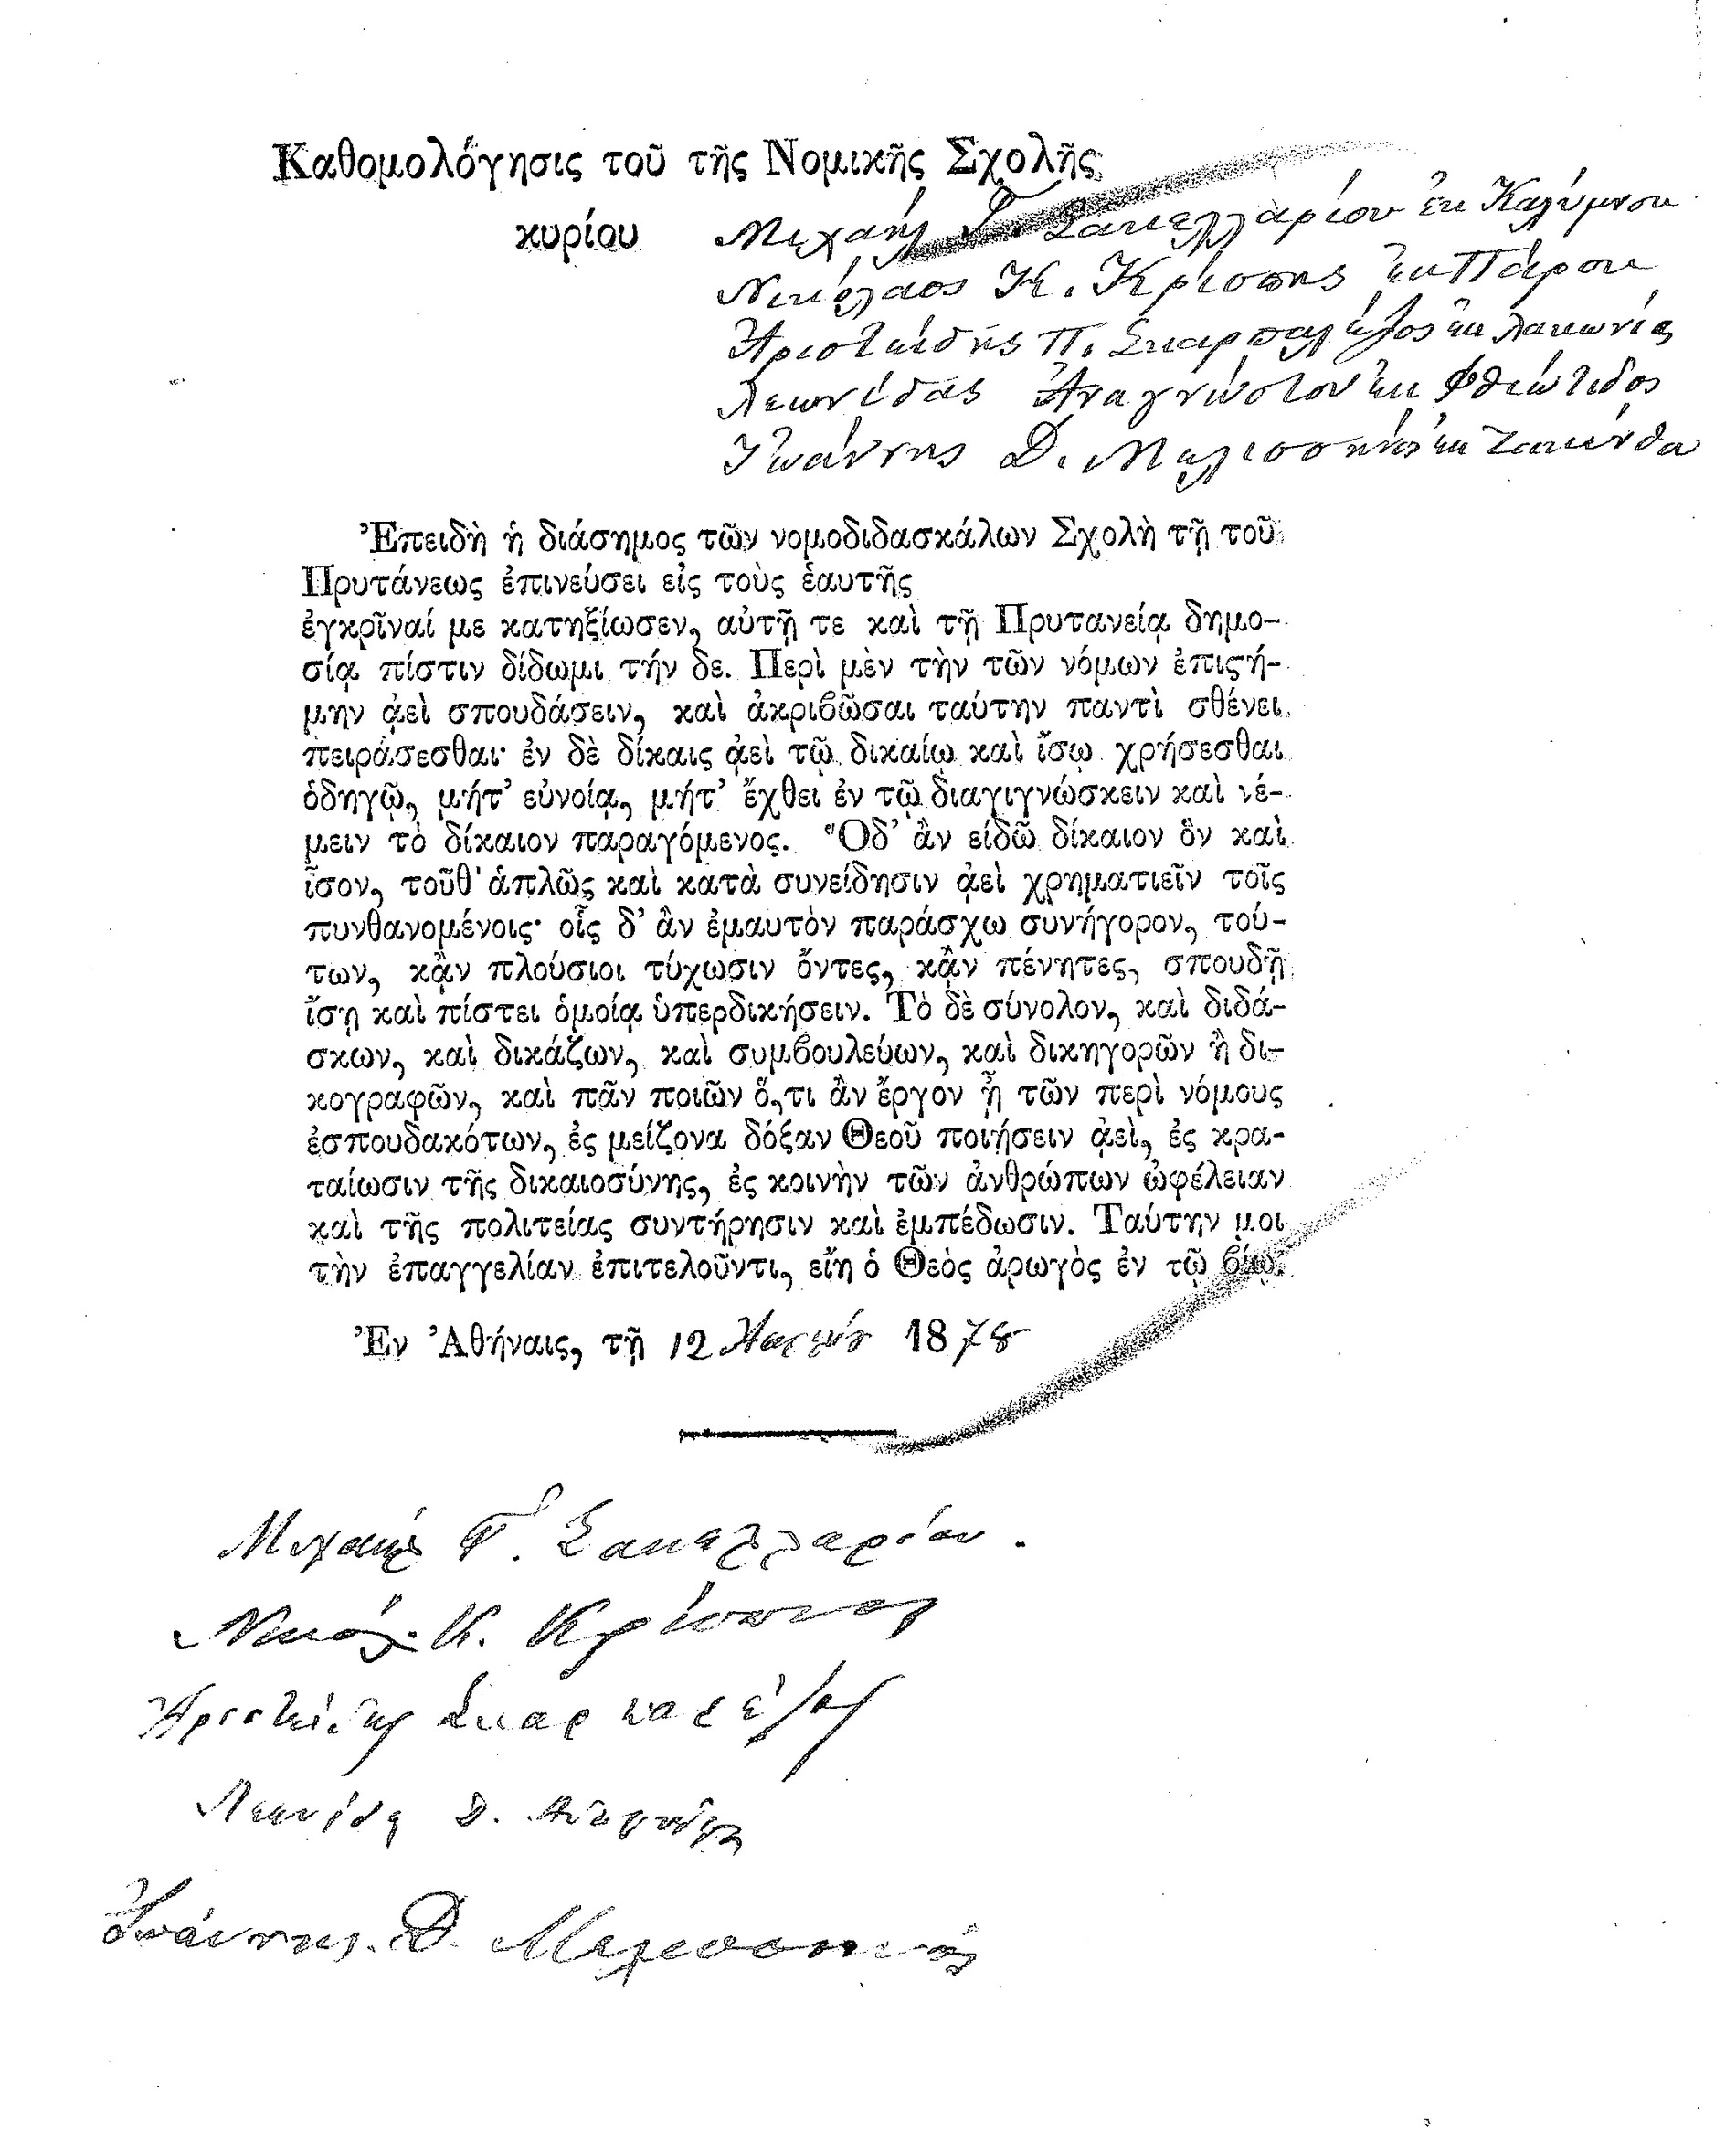 Καθομολόγησις τοῦ τῆς Νομικῆς Σχολῆς
κυρίου Μιχαὴλ Γ. Σακελλαρίου ἐκ Καλύμνου
Νικόλαος Κ. Κρίσπης ἐκ Πάρου
Ἀριστείδης Π. Σκαρπαλέζος ἐκ Λακωνίας
Λεωνίδας Ἀναγνώστου ἐκ Φθιώτιδος
Ἰωάννης Δ. Μελισσηνός ἐκ Ζακύνθου
Ἐπειδὴ ἡ διάσημος τῶν νομοδιδασκάλων Σχολὴ τῇ τοῦ
Πρυτάνεως ἐπινεύσει εἰς τοὺς ἑαυτῆς
ἐγκρῖναί με κατηξίωσεν, αὐτῇ τε καὶ τῇ Πρυτανείᾳ δημο-
σίᾳ πίστιν δίδωμι τήν δε. Περὶ μὲν τὴν τῶν νόμων ἐπιςή-
μην ᾀεὶ σπουδάσειν, καὶ ἀκριβῶσαι ταύτην παντὶ σθένει
πειράσεσθαι· ἐν δὲ δίκαις ᾀεὶ τῷ δικαίῳ καὶ ἴσῳ χρήσεσθαι
ὁδηγῷ, μήτ' εὐνοίᾳ, μήτ' ἔχθει ἐν τῷ διαγιγνώσκειν καὶ νέ-
μειν τὸ δίκαιον παραγόμενος. Ὅδ' ἂν εἰδῶ δίκαιον ὂν καὶ
ἶσον, τοῦθ' ἁπλῶς καὶ κατὰ συνείδησιν ᾀεὶ χρηματιεῖν τοῖς
πυνθανομένοις· οἷς δ' ἂν ἐμαυτὸν παράσχω συνήγορον, τού-
των, κᾂν πλούσιοι τύχωσιν ὄντες, κᾂν πένητες, σπουδῇ
ἴσῃ καὶ πίστει ὁμοίᾳ ὑπερδικήσειν. Τὸ δὲ σύνολον, καὶ διδά-
σκων, καὶ δικάζων, καὶ συμβουλεύων, καὶ δικηγορῶν ἢ δι-
κογραφῶν, καὶ πᾶν ποιῶν ὅ,τι ἂν ἔργον ᾖ τῶν περὶ νόμους
ἐσπουδακότων, ἐς μείζονα δόξαν Θεοῦ ποιήσειν ᾀεὶ, ἐς κρα-
ταίωσιν τῆς δικαιοσύνης, ἐς κοινὴν τῶν ἀνθρώπων ὠφέλειαν
καὶ τῆς πολιτείας συντήρησιν καὶ ἐμπέδωσιν. Ταύτην μοι
τὴν ἐπαγγελίαν ἐπιτελοῦντι, εἴη ὁ Θεὸς ἀρωγὸς ἐν τῷ βίῳ.
Ἐν Ἀθήναις, τῇ 12 1878
Μιχαὴλ Γ. Σακελλαρίου.
Νικόλ. Κ. Κρίσπης
Ἀριστείδης Σκαρπαλέζος
Λεωνίδας Δ.
Ἰωάννης. Δ. Μελισσηνός